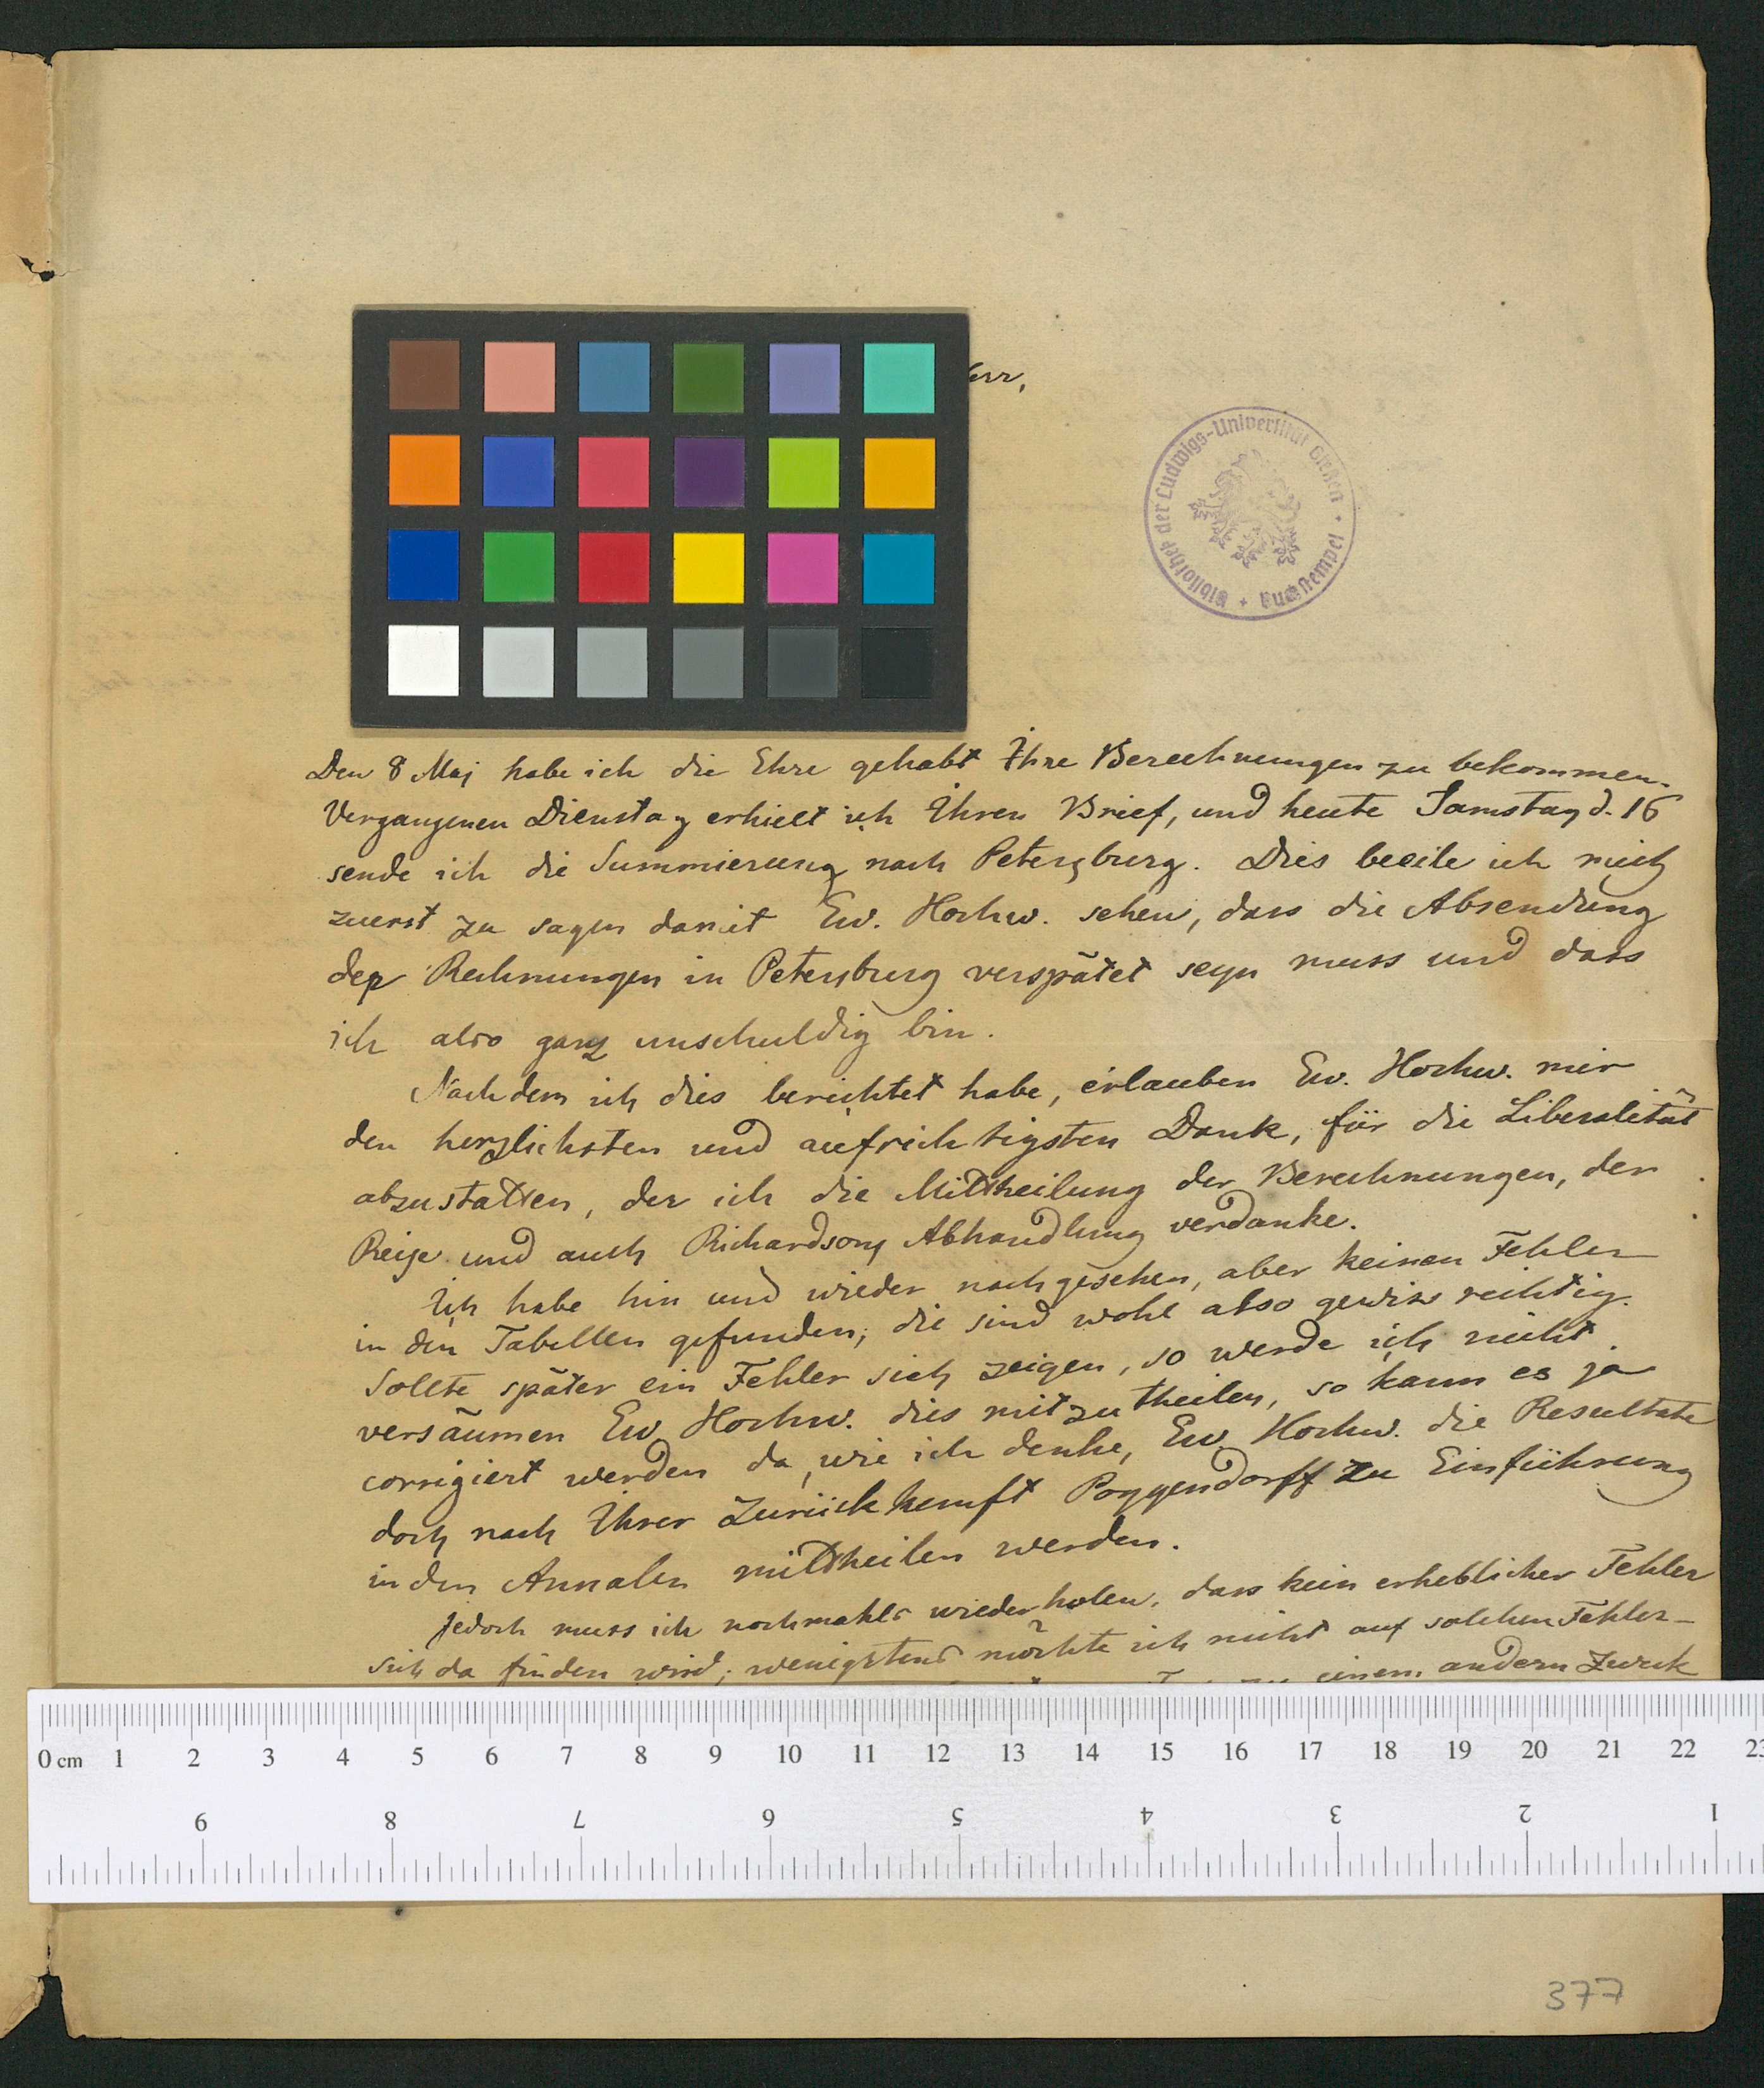 Den 8 Maj habe ich die Ehre gehabt Ihre Berechnungen zu bekommen.
Vergangenen Dienstag erhielt ich Ihren Brief, und heute Samstag d. 16
sende ich die Summierung nach Petersburg. Dies beeile ich mich
zuerst zu sagen damit Ew. Hochw. sehen, dass die Absendung
der Rechnungen in Petersburg verspätet seyn muss und dass
ich also ganz unschuldig bin.
Nachdem ich dies berichtet habe, erlauben Ew. Hochw. mir
den herzlichsten und aufrichtigsten Dank, für die Liberalität
abzustatten, der ich die Mittheilung der Berechnungen, der
Reise und auch Richardsons Abhandlung verdanke.
Ich habe hin und wieder nachgesehen, aber keinen Fehler
in den Tabellen gefunden; die sind wohl also gewiss richtig.
Sollte später ein Fehler sich zeigen, so werde ich nicht
versäumen Ew. Hochw. dies mitzutheilen, so kann es ja
corrigiert werden da, wie ich denke, Ew. Hochw. die Resultate
doch nach Ihrer Zurückkunft Poggendorff zu Einführung
in den Annalen mittheilen werden.
Jedoch muss ich nochmahls wiederholen, dass kein erheblicher Fehler
sich da finden wird; wenigstens möchte ich nicht auf solchen Fehler
einem andern Zweck
Bibliothek der Ludwigs-Universität Gießen · Buchstempel
0 cm 1 2 3 4 5 6 7 8 9 10 11 12 13 14 15 16 17 18 19 20 21 22 23
9 8 7 6 5 4 3 2 1
377